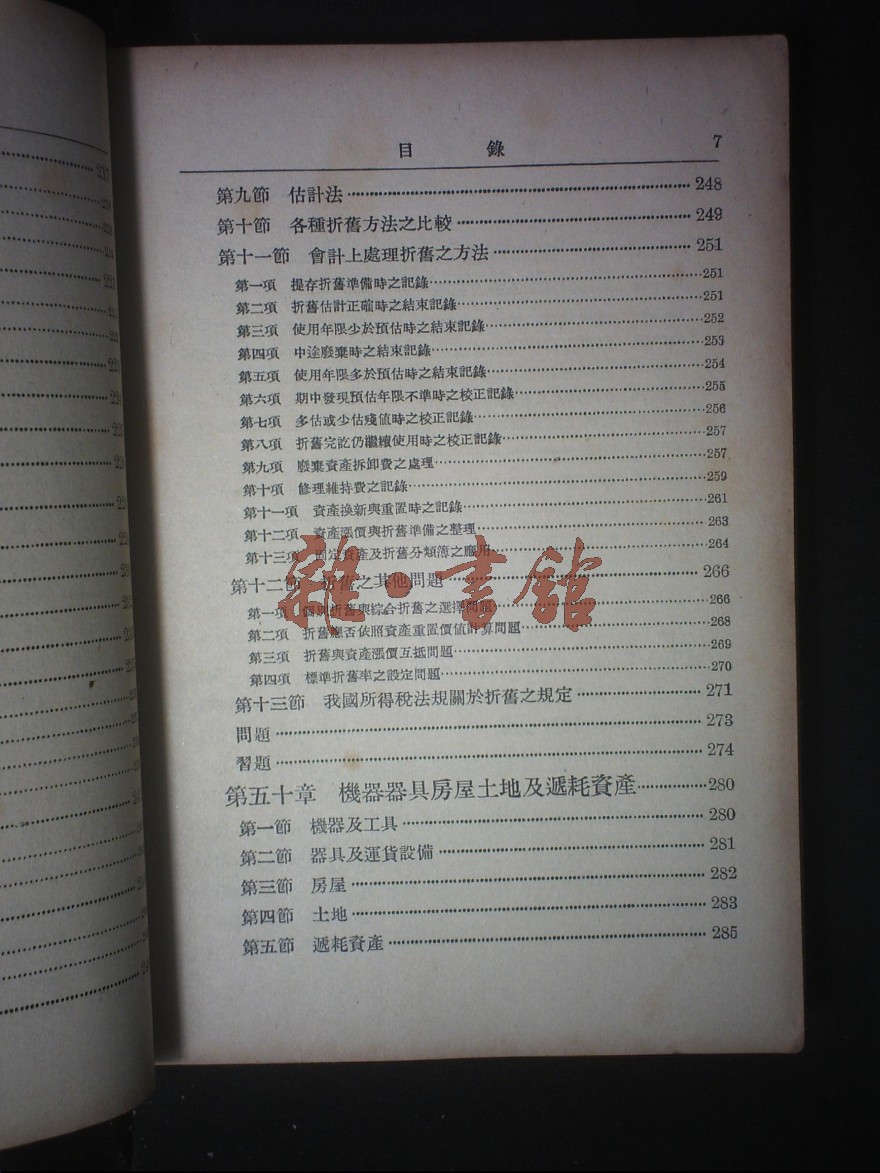 目 錄 7
第九節 估計法 248
第十節 各種折舊方法之比較 249
第十一節 會計上處理折舊之方法 251
第一項 提存折舊準備時之記錄 251
第二項 折舊估計正確時之結束記錄 251
第三項 使用年限少於預估時之結束記錄 252
第四項 中途廢棄時之結束記錄 253
第五項 使用年限多於預估時之結束記錄 254
第六項 期中發現預估年限不準時之校正記錄 255
第七項 多估或少估殘值時之校正記錄 256
第八項 折舊完訖仍繼續使用時之校正記錄 257
第九項 廢棄資產拆卸費之處理 257
第十項 修理維持費之記錄 259
第十一項 資產換新與重置時之記錄 261
第十二項 資產漲價與折舊準備之整理 263
第十三項 固定資產及折舊分類簿之應用 264
第十二節 折舊之其他問題 266
第一項 個別折舊與綜合折舊之選擇問題 266
第二項 折舊應否依照資產重置價值計算問題 268
第三項 折舊與資產漲價互抵問題 269
第四項 標準折舊率之設定問題 270
第十三節 我國所得稅法規關於折舊之規定 271
問題 273
習題 274
第五十章 機器器具房屋土地及遞耗資產 280
第一節 機器及工具 280
第二節 器具及運貨設備 281
第三節 房屋 282
第四節 土地 283
第五節 遞耗資產 285
雜·書館